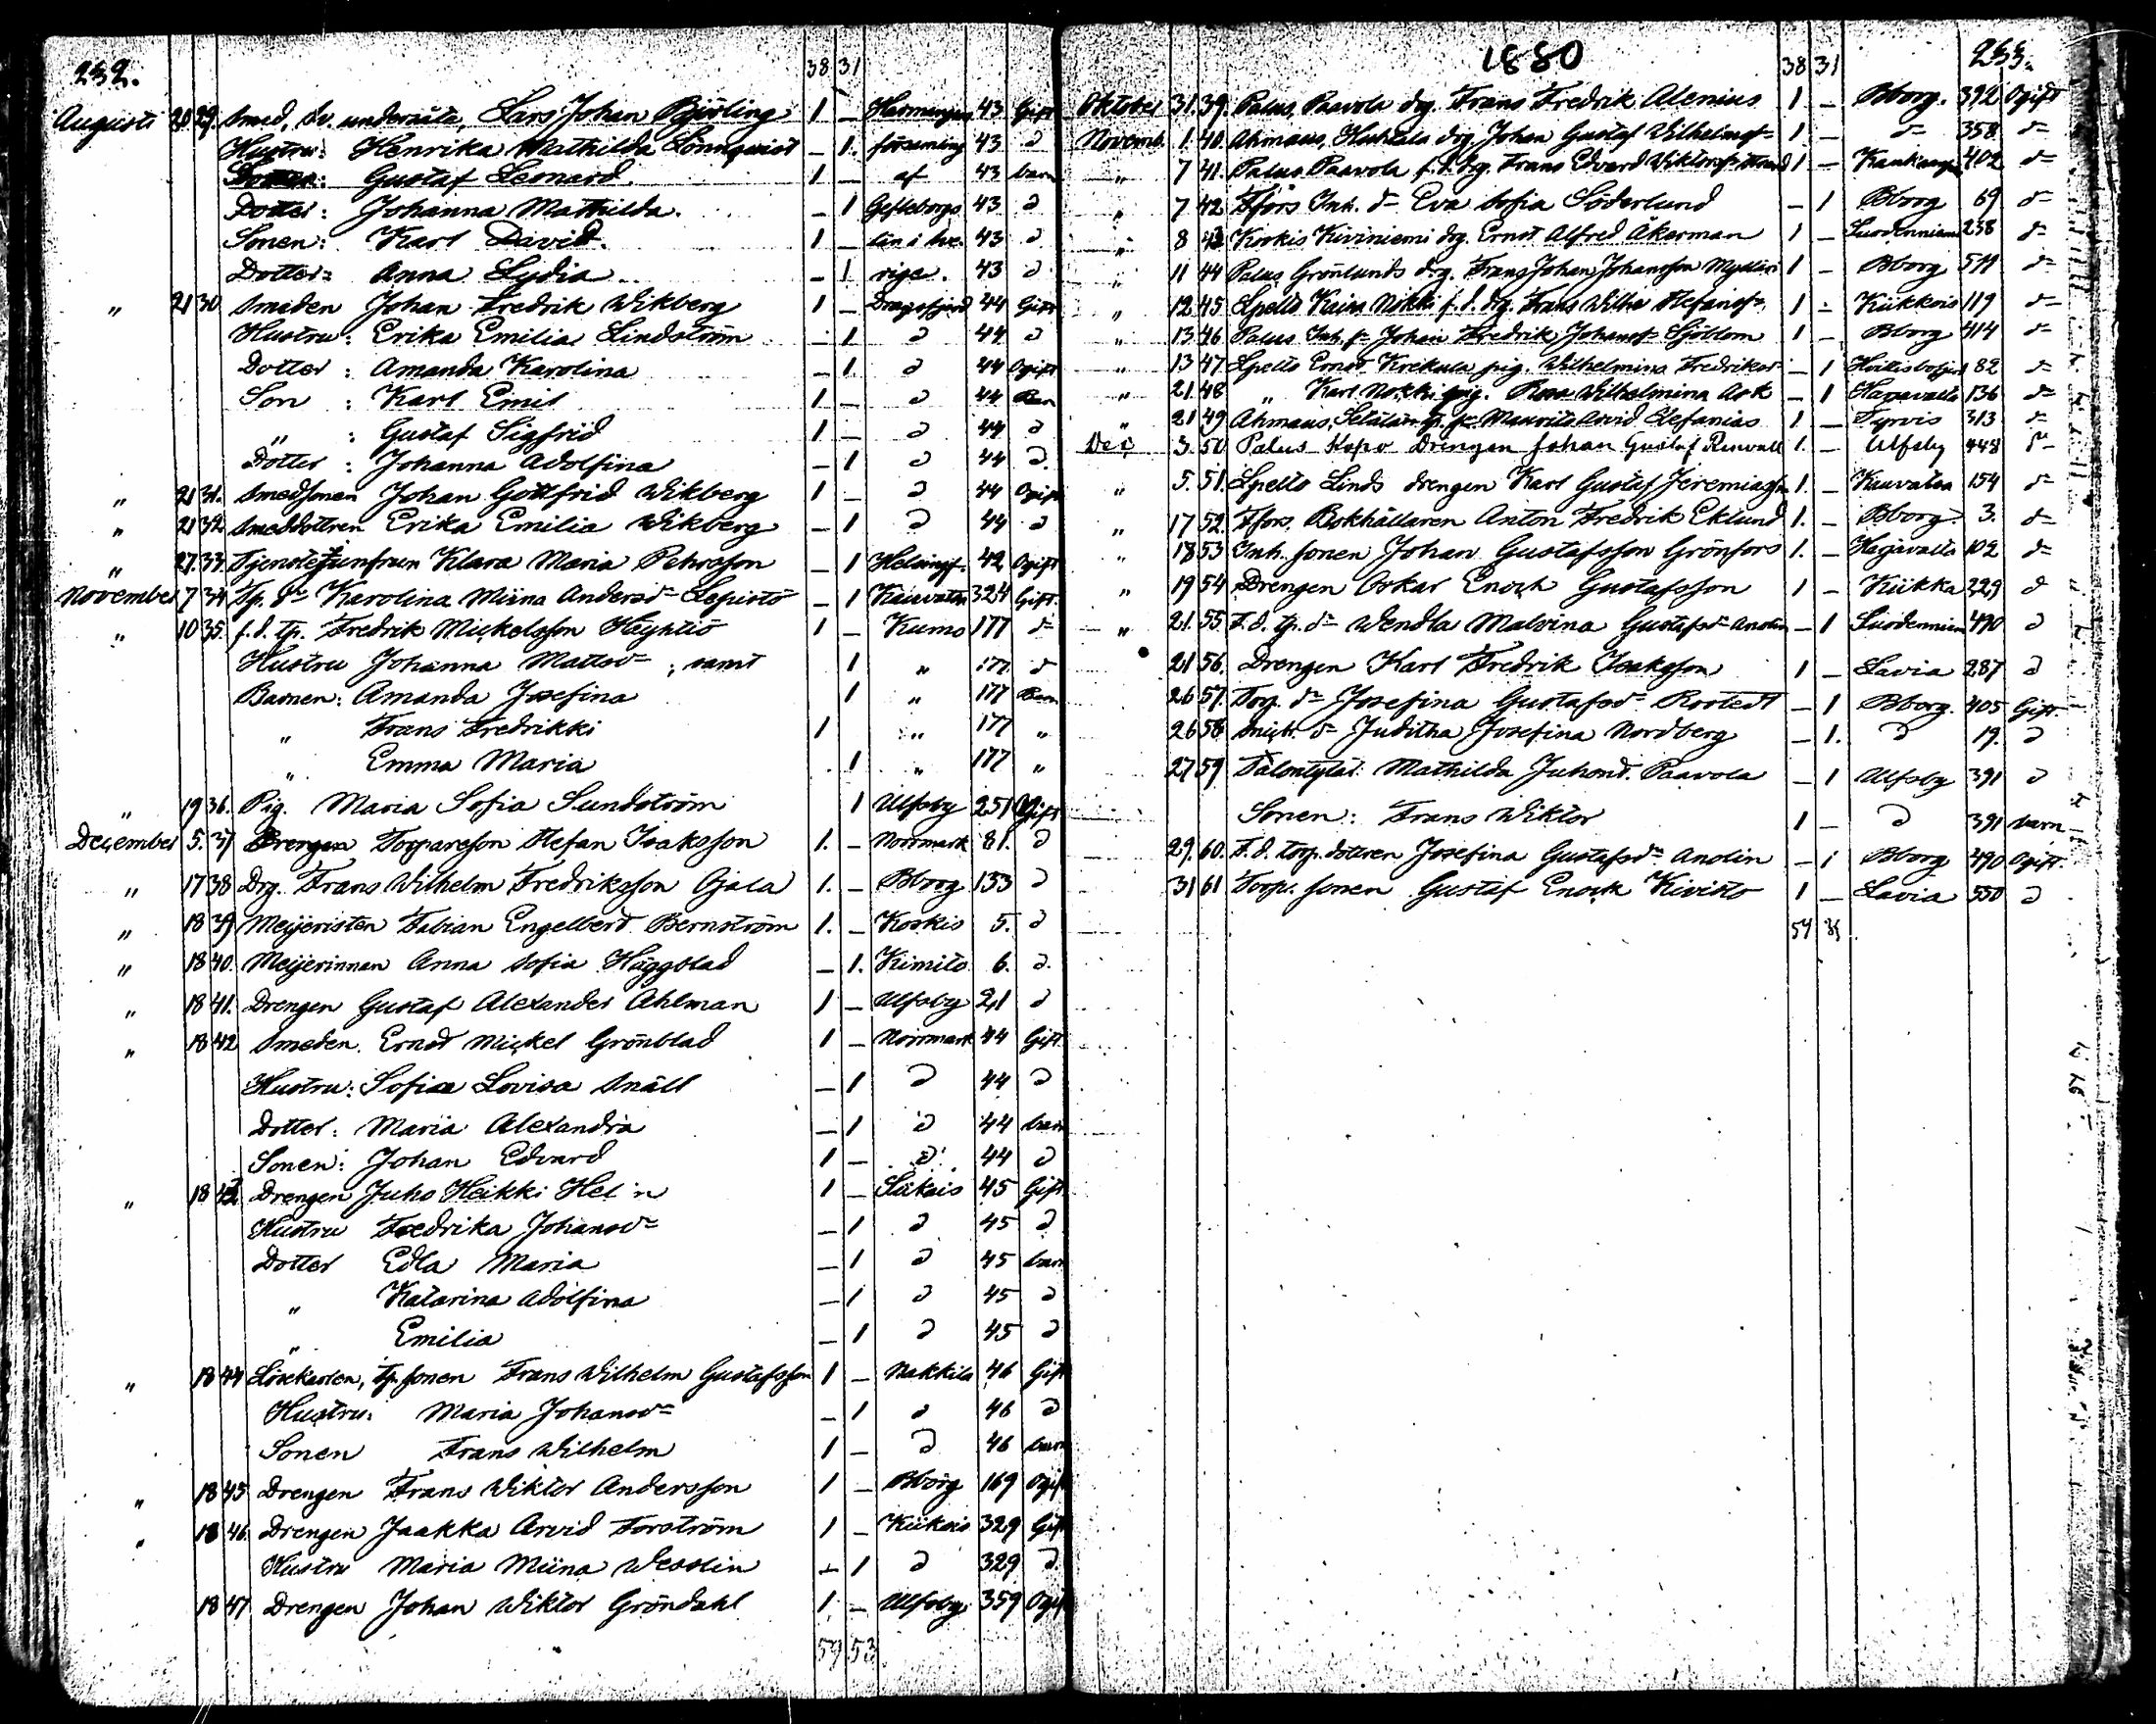 232.
38 31
Augusti 20 29. Smed, Sv. undersåte, Lars Johan Björling 1 — 43 Gift
Hustru: Henrika Mathilda Lönnqvist — 1. församling 43 d
Gustaf Leonard 1 — af 43 barn
Dotter: Johanna Mathilda. — 1 Gefleborgs 43 d
Sonen: Karl David. 1 — län i Sve- 43 d
Dotter: Anna Lydia — 1 rige. 43 d
" 21 30 Smeden Johan Fredrik Wikberg 1 — Dragsfjerd 44 Gift
Hustru: Erika Emilia Lindström — 1 d 44 d
Dotter: Amanda Karolina — 1. d 44 Ogift
Son: Karl Emil 1 — d 44 Barn
" : Gustaf Sigfrid 1 — d 44 d
Dotter: Johanna Adolfina — 1 d 44 d.
" 21 31. Smedsonen Johan Gottfrid Wikberg 1 — d 44 Ogift
" 21 32 Smeddottren Erika Emilia Wikberg — 1 d 44 d
" 27. 33. Tjenstejungfrun Klara Maria Pehrsson — 1 Helsingf. 42 Ogift
November 7 34 Tp. d= Karolina Miina Andersd= Lepistö — 1 Kauvatsa 324 Gift.
" 10 35. f.d. tp. Fredrik Mickelsson Häyhtiö 1 — Kumo 177 d=
Hustru Johanna Mattsd=, samt 1 " 177 d
Barnen: Amanda Josefina 1 " 177 Barn
" Frans Fredrikki 1 " 177 "
" Emma Maria 1 " 177 "
" 19 36. Pig. Maria Sofia Sundström 1 Ulfsby 251 Ogift
December 5. 37 Drengen Torpareson Stefan Isaksson 1. — Norrmark 81. d
" 17 38 Drg. Frans Wilhelm Fredriksson Ojala 1. — Bborg 133 d
" 18 39 Meijeristen Fabian Engelbert Bernström 1. — Koskis 5. d
" 18 40. Meijerinnan Anna Sofia Häggblad — 1. Kimito 6. d.
" 18 41. Drengen Gustaf Alexander Ahlman 1 — Ulfsby 21 d
" 18 42 Smeden Ernst Mickel Grönblad 1 — Norrmark 44 Gift
Hustru: Sofia Lovisa Snäll — 1 d 44 d
Dotter: Maria Alexandra — 1 d 44 barn
Sonen: Johan Edvard 1 — d 44 d
" 18 43 Drengen Juho Heikki Helin 1 — 45 Gift
Hustru Fredrika Johansd= — 1 d 45 d
Dotter Edla Maria — 1 d 45 barn
" Katarina Adolfina — 1 d 45 d
" Emilia — 1 d 45 d
" 18 44 Lösekarlen, tp. sonen Frans Wilhelm Gustafsson 1 — Nakkila 46 Gift
Hustru: Maria Johansd= — 1 d 46 d
Sonen Frans Wilhelm 1 — d 46 barn
" 18 45 Drengen Frans Wiktor Andersson 1 — Bborg 169 Ogift
" 18 46. Drengen Jaakka Arvid Forström 1 — Kiikois 329 Gift
Hustru Maria Miina Wesslin — 1 d 329 d.
18 47 Drengen Johan Wiktor Gröndahl 1 — Ulfsby 359 Ogift
59 53
1880
38 31 233.
Oktober 31. 39. Palus, Paavola drg. Frans Fredrik Alenius 1 — Bborg. 392 Ogift
Novemb. 1. 40. Ahmaus, Huhtala drg. Johan Gustaf Wilhelmsf= 1 — d= 358 d=
" 7 41. Palus Paavola f.d. drg. Frans Edvard 1 — 402 d=
" 7 42 Tfors Inh. d= Eva Sofia Söderlund — 1 Bborg 69 d=
" 8 43 Koskis Kiviniemi drg. Ernst Alfred Åkerman 1 — Suodenniemi 238 d=
" 11 44 Palus Grönlunds drg. Frans Johan Johansson 1 — Bborg 511 d=
" 12 45 Lpelto Kaira Nokki f.d. drg. Frans Wilho Stefansf= 1 — Kiikkois 119 d=
" 13. 46 Palus Inh. f= Johan Fredrik Johansf= Sjöblom 1 — Bborg 414 d=
" 13 47 Lpelto Ernst Krekula pig. Wilhelmina Fredriksd= — 1 82 d=
" 21. 48 " Karl Nokki pig. Rosa Wilhelmina Ask — 1 Harjavalta 136 d=
" 21 49 Ahmaus, tp. f= Maurits Arvid Stefanias 1 — Tyrvis 313 d=
Dec 3. 50 Palus Hopo Drengen Johan Gustaf Renvall 1. — Ulfsby 448 d=
" 5. 51. Lpelto Linds drengen Karl Gustaf Jeremiasson 1. — Kauvatsa 154 d=
" 17 52. Tfors. Bokhållaren Anton Fredrik Eklund 1. — Bborg. 3. d=
" 18 53 Inh. sonen Johan Gustafsson Grönfors 1. — Harjavalta 102 d=
" 19 54 Drengen Oskar Enoch Gustafsson 1 — Kiikka 229 d
" 21. 55. F.d. tp. d= Wendla Malvina Gustafsd= Anolin — 1 Suodenniemi 490 d
21 56. Drengen Karl Fredrik Isaksson 1 — Lavia 287 d
26 57. Torp. d= Josefina Gustafsd= Rostedt — 1 Bborg. 405 Gift.
26 58 Snick. d= Juditha Josefina Nordberg — 1. d 19. d
27 59 Mathilda Juhond. Paavola — 1 Ulfsby 391 d
Sonen: Frans Wiktor 1 — d 391 barn
29. 60. F.d. torp. dottren Josefina Gustafsd= Anolin — 1 Bborg 490 Ogift.
31 61 Torp. sonen Gustaf Enock Kivistö 1 — Lavia 550 d
54